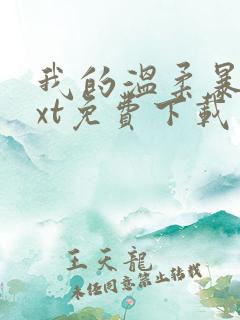 我的温柔暴
xt免費下載
王天龍
未经同意禁止转载